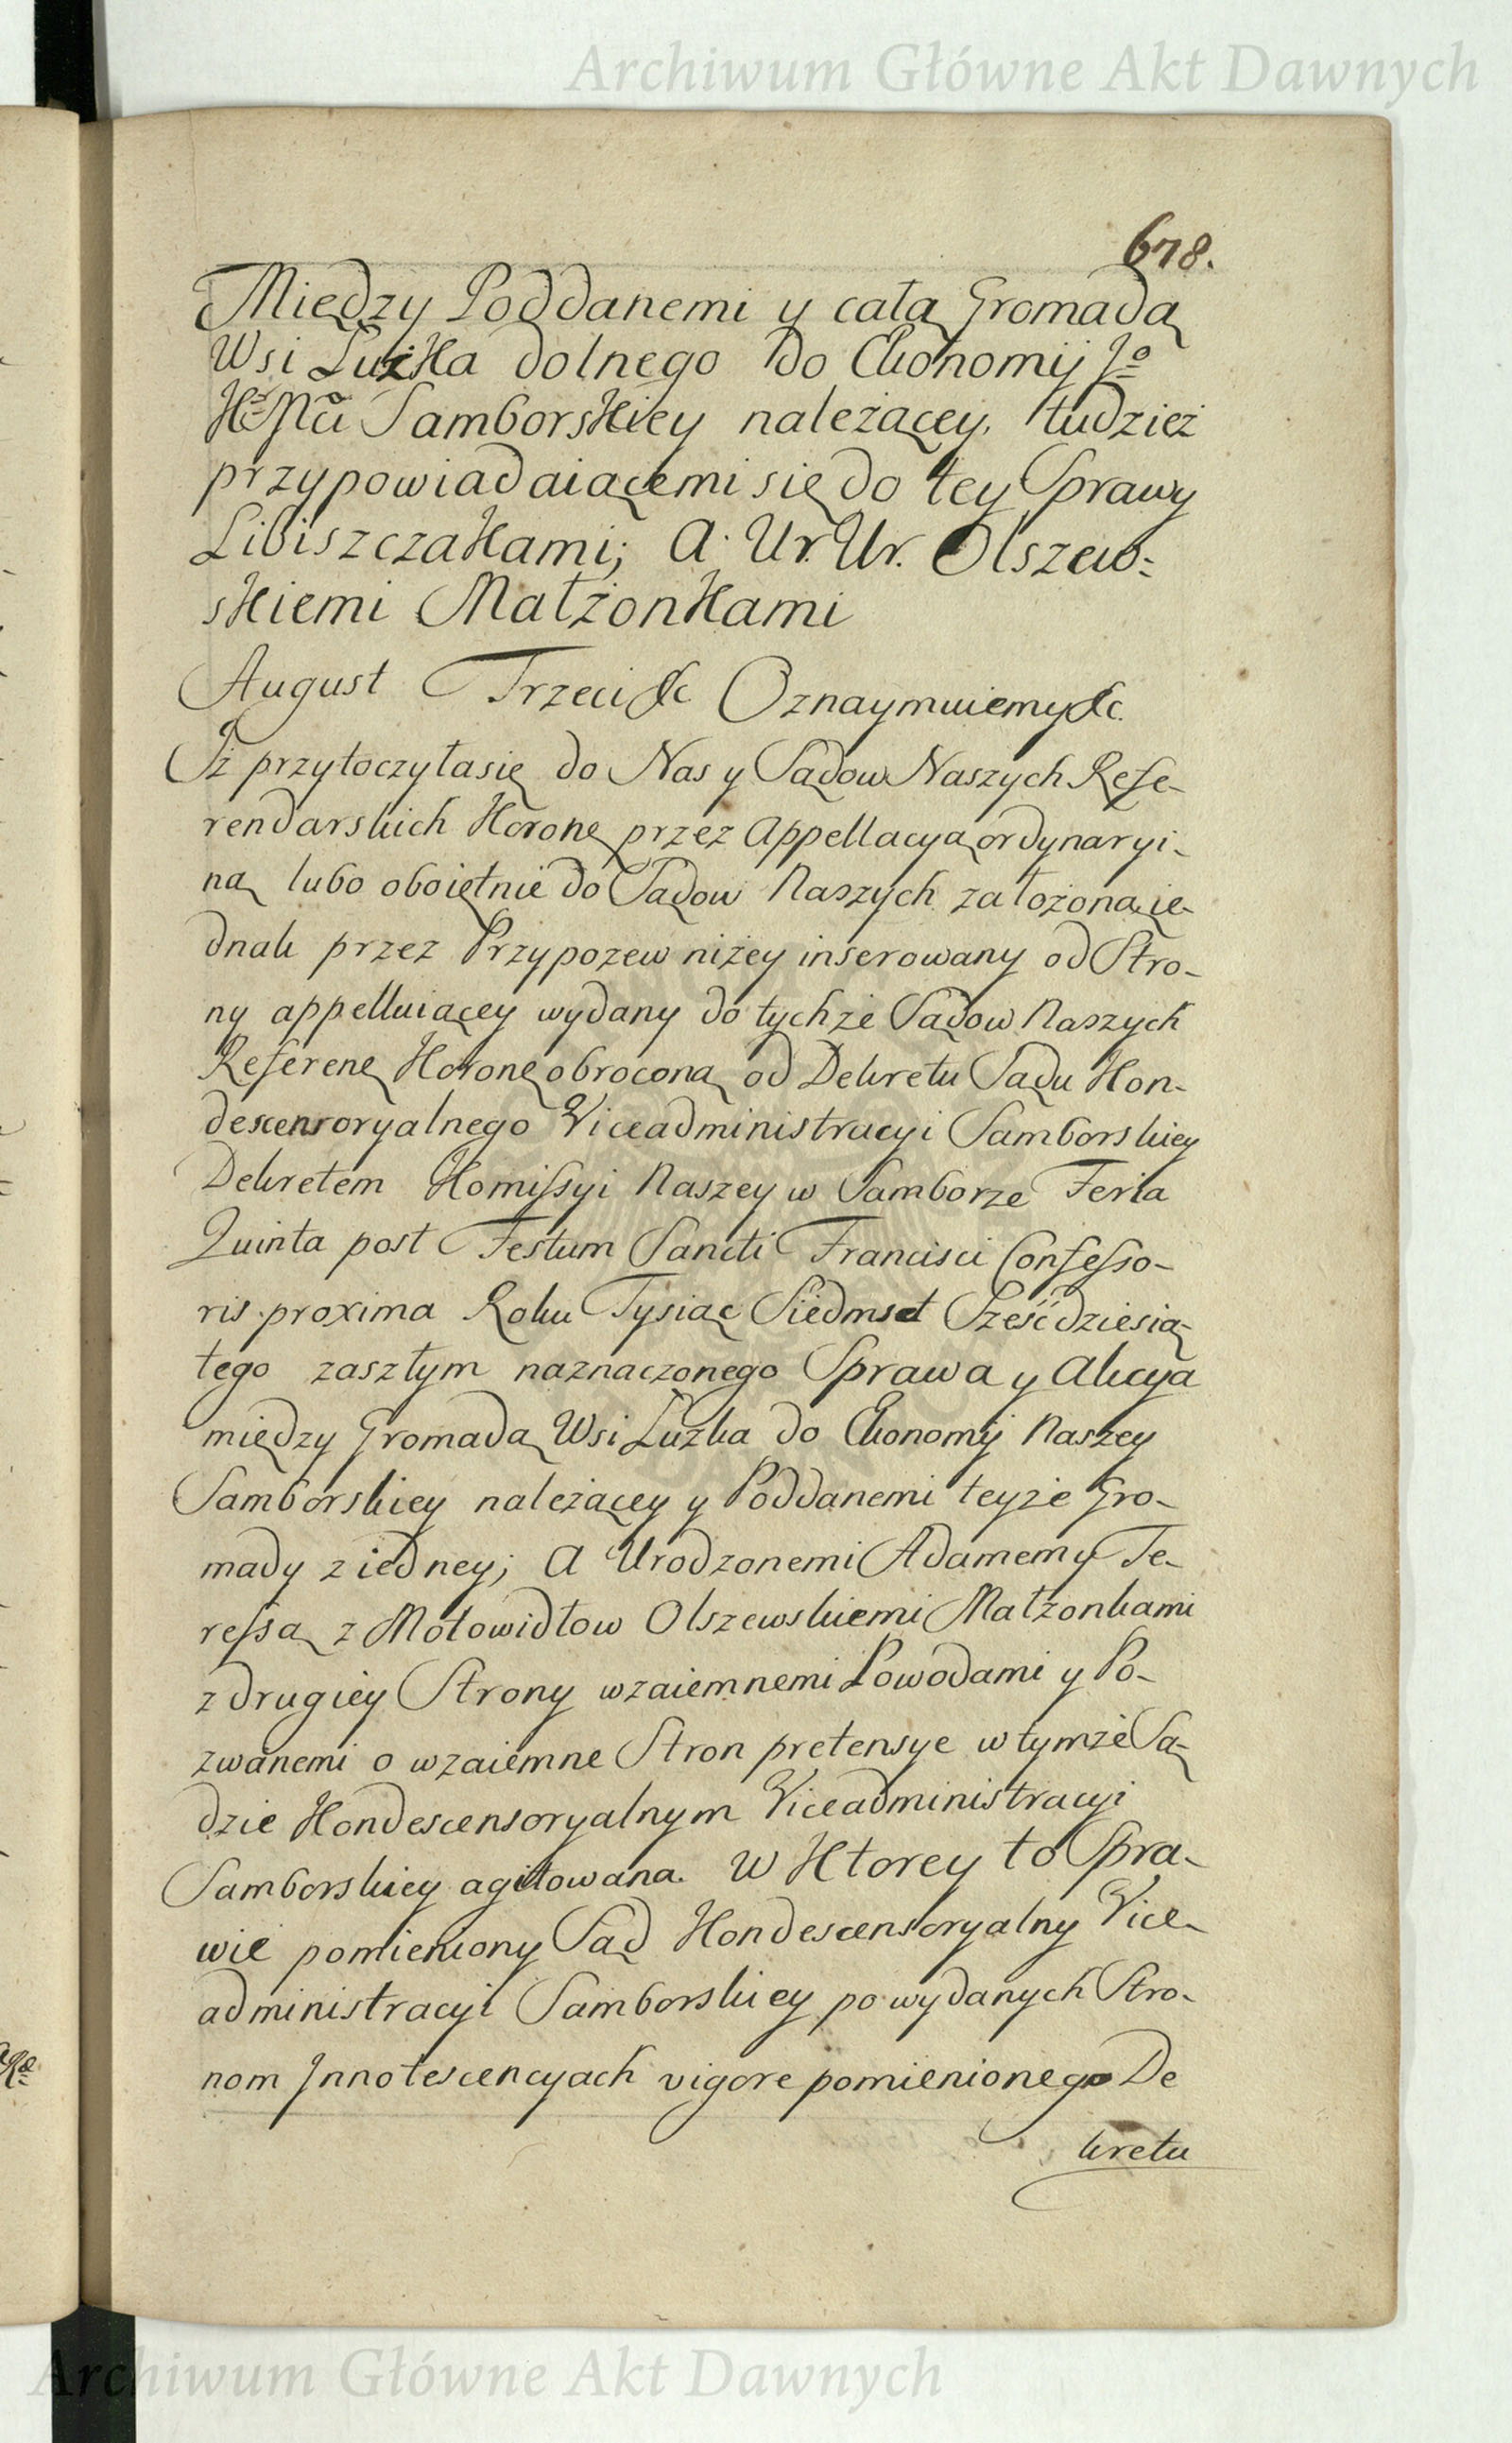 Archiwum Główne Akt Dawnych
678.
Między Poddanemi y całą Gromadą
Wsi Łużka dolnego do Ekonomij J:o
K:r Mci Samborskiey należącey, tudzież
przypowiadaiącemi się do tey Sprawy
Libiszczakami; A Ur. Ur. Olszew:
skiemi Małżonkami
August Trzeci &c Oznaymuiemy &c.
Iż przytoczyłasię do Nas y Sądow Naszych Refe-
rendarskich Koronę przez Appellacyą ordynaryi-
ną lubo oboiętnie do Sądow Naszych założoną ie-
dnak przez Przypozew niżey inserowany od Stro-
ny appelluiącey wydany do tychże Sądow Naszych
Referenę Koronę obroconą od Dekretu Sądu Kon-
descensoryalnego Viceadministracyi Samborskiey
Dekretem Komissyi Naszey w Samborze Feria
Quinta post Festum Sancti Francisci Confesso-
ris proxima Roku Tysiąc Siedmset Sześćdziesią-
tego zaszłym naznaczonego Sprawa y Akcya
między Gromadą Wsi Łużka do Ekonomij Naszey
Samborskiey należącey y Poddanemi teyże Gro-
mady z iedney; A Urodzonemi Adamem y Te-
ressą z Mołowidłow Olszewskiemi Małżonkami
z drugiey Strony wzaiemnemi Powodami y Po-
zwanemi o wzaiemne Stron pretensye w tymże Są-
dzie Kondescensoryalnym Viceadministracyi
Samborskiey agitowana. W Ktorey to Spra-
wie pomieniony Sąd Kondescensoryalny Vice-
administracyi Samborskiey po wydanych Stro-
nom Innotescencyach vigore pomienionego De
kretu
Archiwum Główne Akt Dawnych